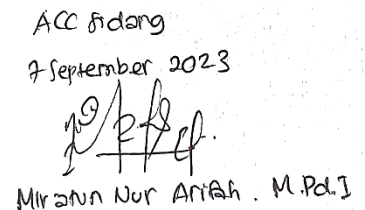 ACC Sidang
7 September 2023
Miratun Nur Arifah. M.Pd.I